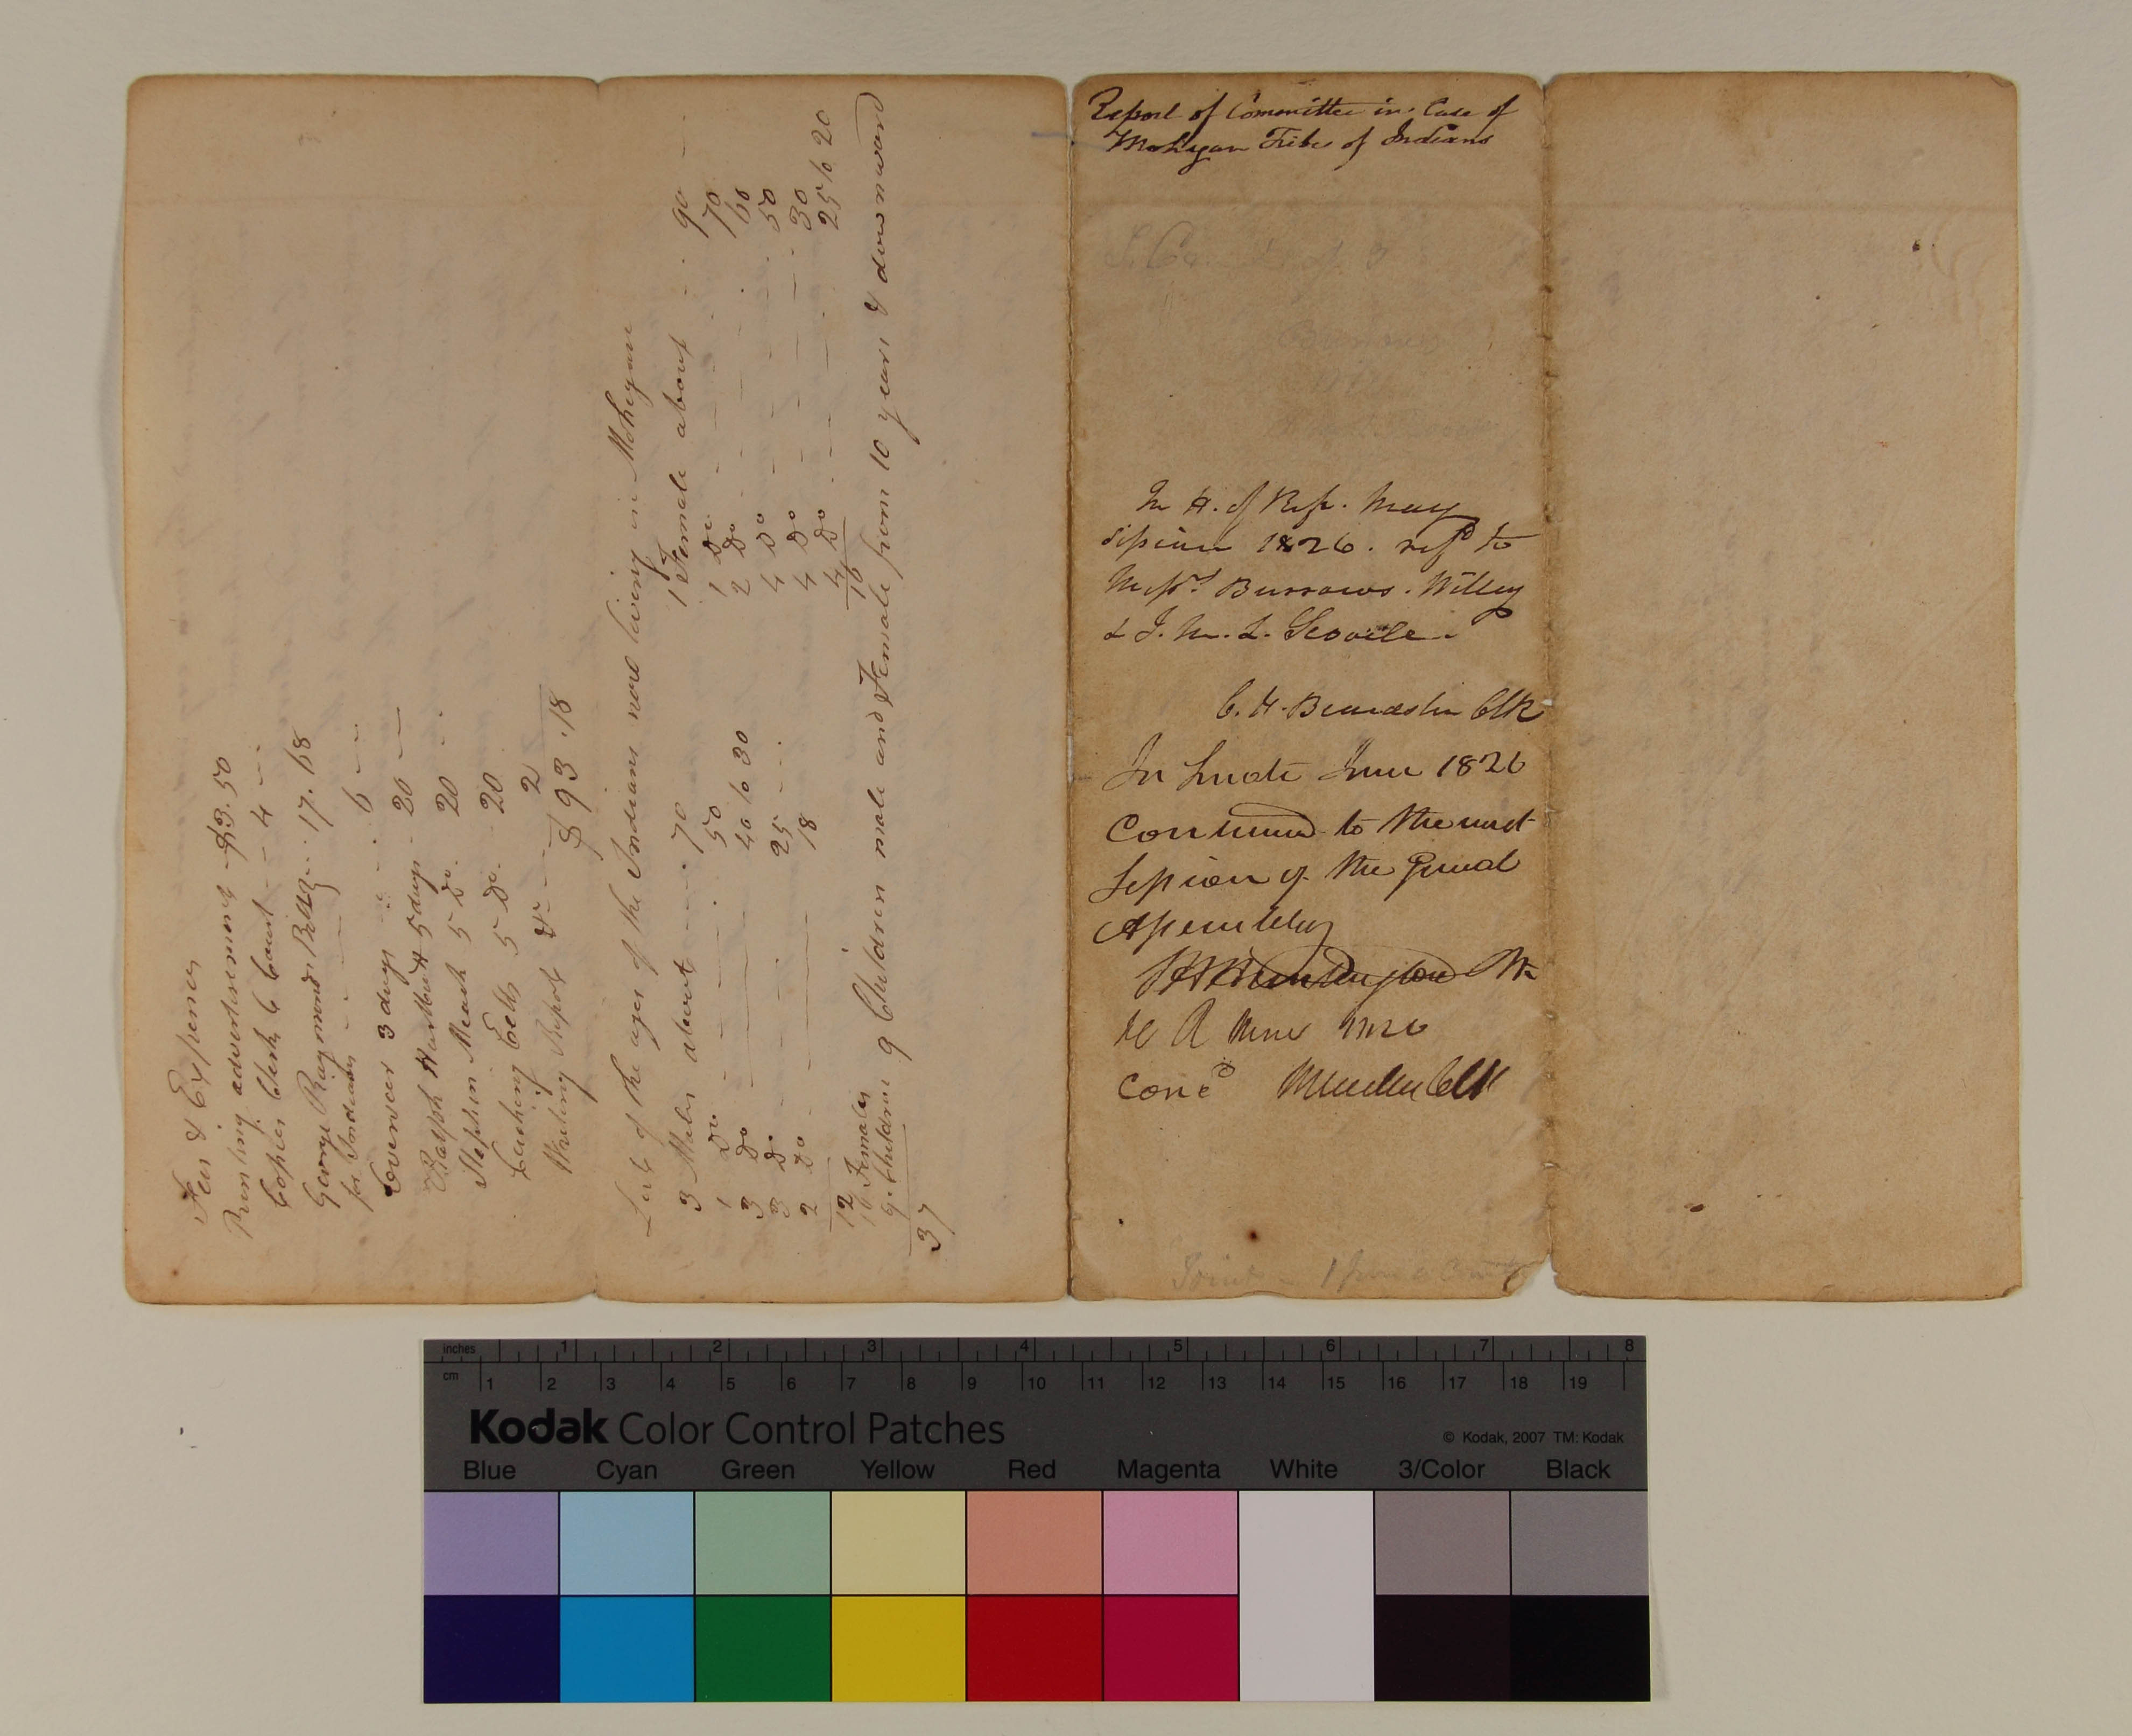 Fees & Expenses
Printing advertisement - $3.50
Copies Clerk C Court - - 4 - -
George Raymonds Bill 17.68
for Indians - - - - 6 - -
Overseer 3 days
Ralph Hurlbutt 5 days - 20 —
Stephen Meach 5 Do. 20
Cushing Eells 5 Do. 20
Writing Report &c - - - 2
$93.18
List of the ages of the Indians now living in Mohegan
3 Males about - - - - 70
1 Do. 50
3 Do 40 to 30
3 Do 25 - - -
2 Do 18
12
16 Females
9 Children
37
1 Female about - - 90 - -
1 Do. 70
2 Do 60
4 Do 50
4 Do 30
4 Do 25 to 20
16
9 Children male and Female from 10 years & downward
Report of Committee in Case of
Mohegan Tribe of Indians
In H. of Rep. May
session 1826. refd to
Messrs Burrows. Willey
& J. M. L. Scovile.
C. H. Beardslee Clk
In Senate June 1826
Continued to the next
Session of the General
Assembly
H of R June 1826
Concd Clk
inches 1 2 3 4 5 6 7 8
cm 1 2 3 4 5 6 7 8 9 10 11 12 13 14 15 16 17 18 19
Kodak Color Control Patches
© Kodak, 2007 TM: Kodak
Blue Cyan Green Yellow Red Magenta White 3/Color Black